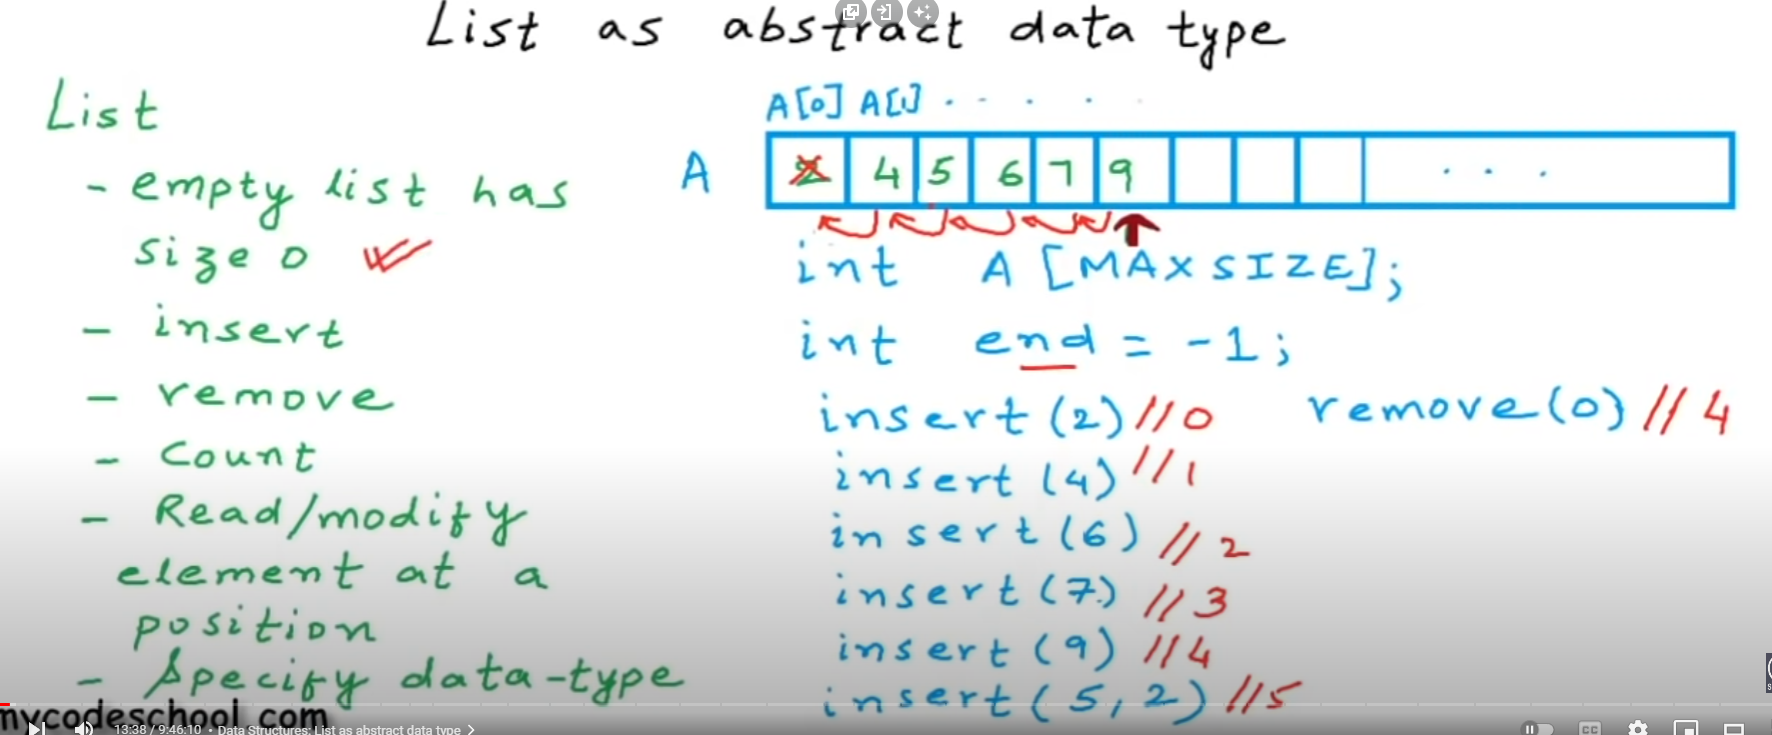 List as abstract data type
List
- empty list has
size 0
- insert
- remove
- Count
- Read/modify
element at a
position
- Specify data-type
A[0] A[1] . - . .
A 2 4 5 6 7 9 . . .
int A [MAXSIZE];
int end = -1;
insert (2) //0 remove(0) // 4
insert (4) //1
insert (6) // 2
insert (7) // 3
insert (9) //4
insert (5, 2) //5
mycodeschool.com
13:38 / 9:46:10 • Data Structures: List as abstract data type
CC